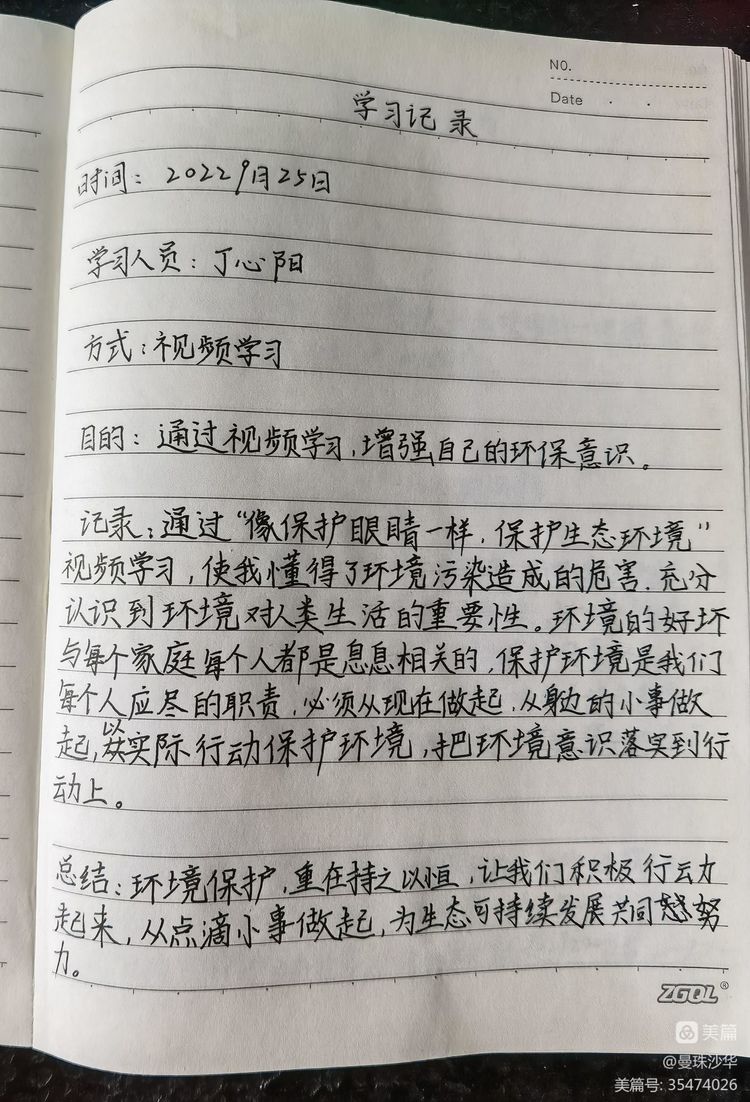 NO.
Date
学习记录
时间：2022 9月25日
学习人员：丁心阳
方式：视频学习
目的：通过视频学习，增强自己的环保意识。
记录：通过“像保护眼睛一样，保护生态环境”
视频学习，使我懂得了环境污染造成的危害，充分
认识到环境对人类生活的重要性。环境的好坏
与每个家庭每个人都是息息相关的，保护环境是我们
每个人应尽的职责，必须从现在做起，从身边的小事做
起，以实际行动保护环境，把环境意识落实到行
动上。
总结：环境保护，重在持之以恒，让我们积极行动
起来，从点滴小事做起，为生态可持续发展共同努
力。
ZGQL®
美篇
@曼珠沙华
美篇号: 35474026